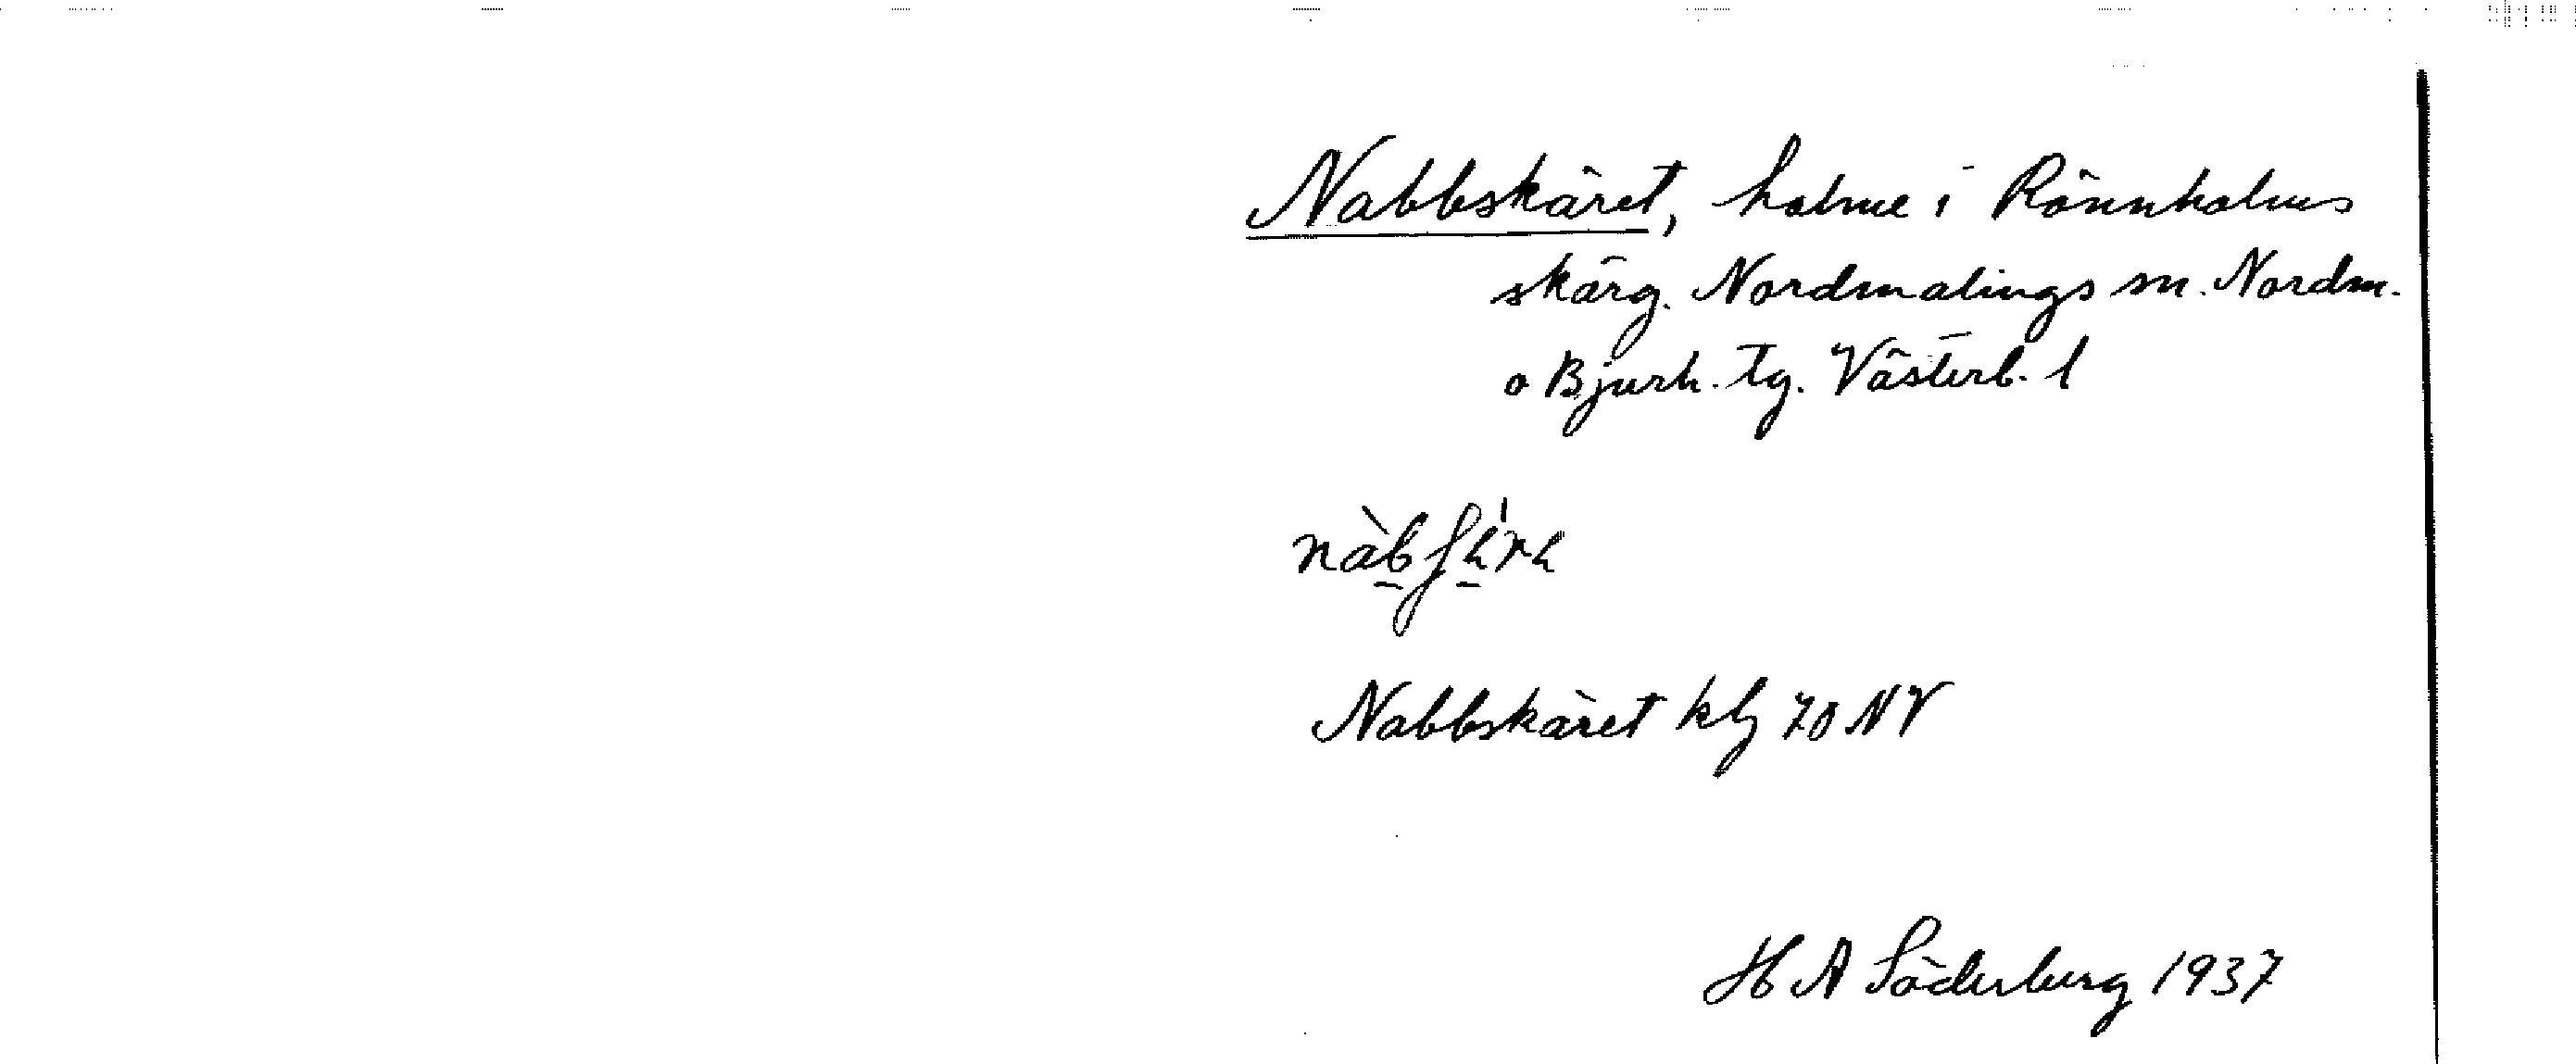 Nabbskäret, holme i Rönnholms
skärg. Nordmalings sn. Nordm.
o Bjurh. tg. Västerb. l
Nabbskäret kbl 70 NV
H A Söderberg 1937